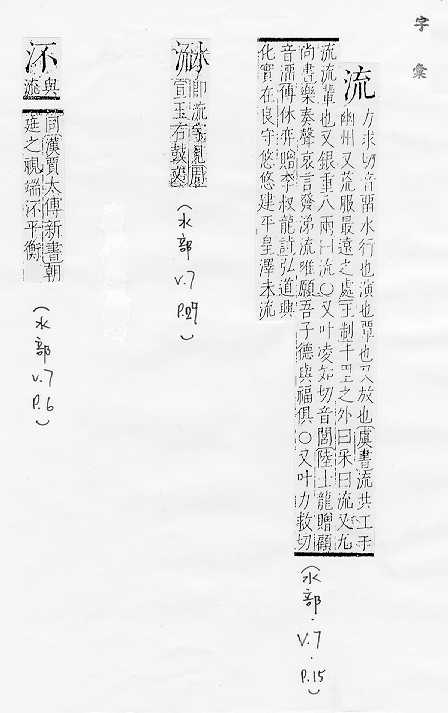 字彙
流
力求切音留水行也演也覃也又放也虞書流共工于
幽州又荒服最遠之處王制千里之外曰采曰流又尨
流流輩也又銀重八兩曰流○又叶凌如切音閭陸士龍贈顧
尚書樂奏聲哀言發涕流唯願吾子德與福俱○又叶力救切
音溜傅休奕
李叔龍詩弘道興
化實在良守悠悠建平皇澤未流
(水部.V.7.P.15)
即流字見周
宣王石鼓文
(水部V.7P.29)
㳅
與流
同漢賈太傅新書朝
廷之視端㳅平衡
(水部V.7P.6)